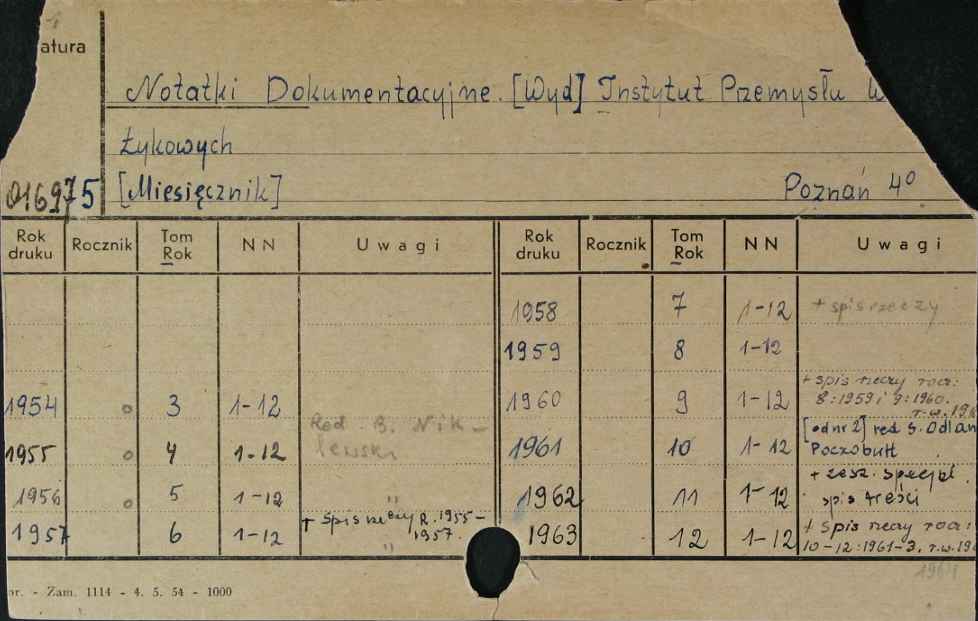 atura
Notatki Dokumentacyjne. [Wyd] Instytut Przemysłu W
Łykowych
016975 [Miesięcznik] Poznań 4°
Rok druku Rocznik Tom Rok NN Uwagi Rok druku Rocznik Tom Rok NN Uwagi
1958 7 1-12 + spis rzeczy
1959 8 1-12
1954 3 1-12 1960 9 1-12 + spis rzeczy rocz:
8:1959 i 9:1960.
Red. B. Nik-
1955 4 1-12 lewski 1961 10 1-12 [od nr 2] red S. Odlan
Poczobutt
1956 5 1-12 " 1962 11 1-12 + zesz. specjal.
spis treści
1957 6 1-12 + spis rzeczy R. 1955-
1957. " 1963 12 1-12 + spis rzeczy rocz:
10-12:1961-3. r.w. 19
1964
or. - Zam. 1114 - 4. 5. 54 - 1000